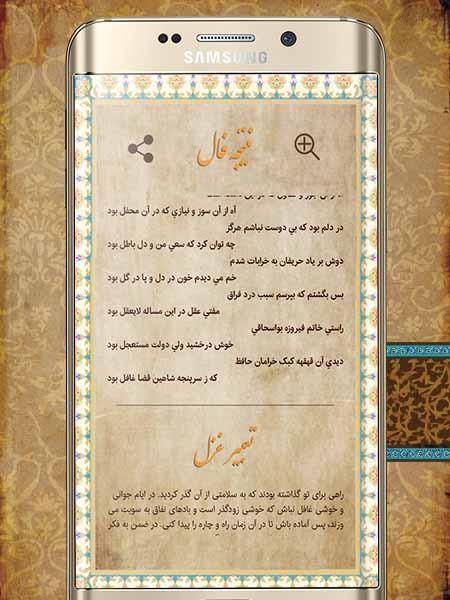 SAMSUNG
نتیجه فال
آه از آن سوز و نیازي که در آن محفل بود
در دلم بود که بي دوست نباشم هرگز
چه توان کرد که سعي من و دل باطل بود
دوش بر ياد حريفان به خرابات شدم
خم مي ديدم خون در دل و پا در گل بود
بس بگشتم که بپرسم سبب درد فراق
مفتي عقل در اين مساله لايعقل بود
راستي خاتم فيروزه بواسحاقي
خوش درخشيد ولي دولت مستعجل بود
ديدي آن قهقهه کبک خرامان حافظ
که ز سرپنجه شاهين قضا غافل بود
تعبیر غزل
راهی برای تو گذاشته بودند که به سلامتی از آن گذر کردید. در ایام جوانی
و خوشی غافل نباش که خوشی زودگذر است و بادهای نفاق به سویت می
وزند، پس آماده باش تا در آن زمان راه و چاره را پیدا کنی. در ضمن به فکر